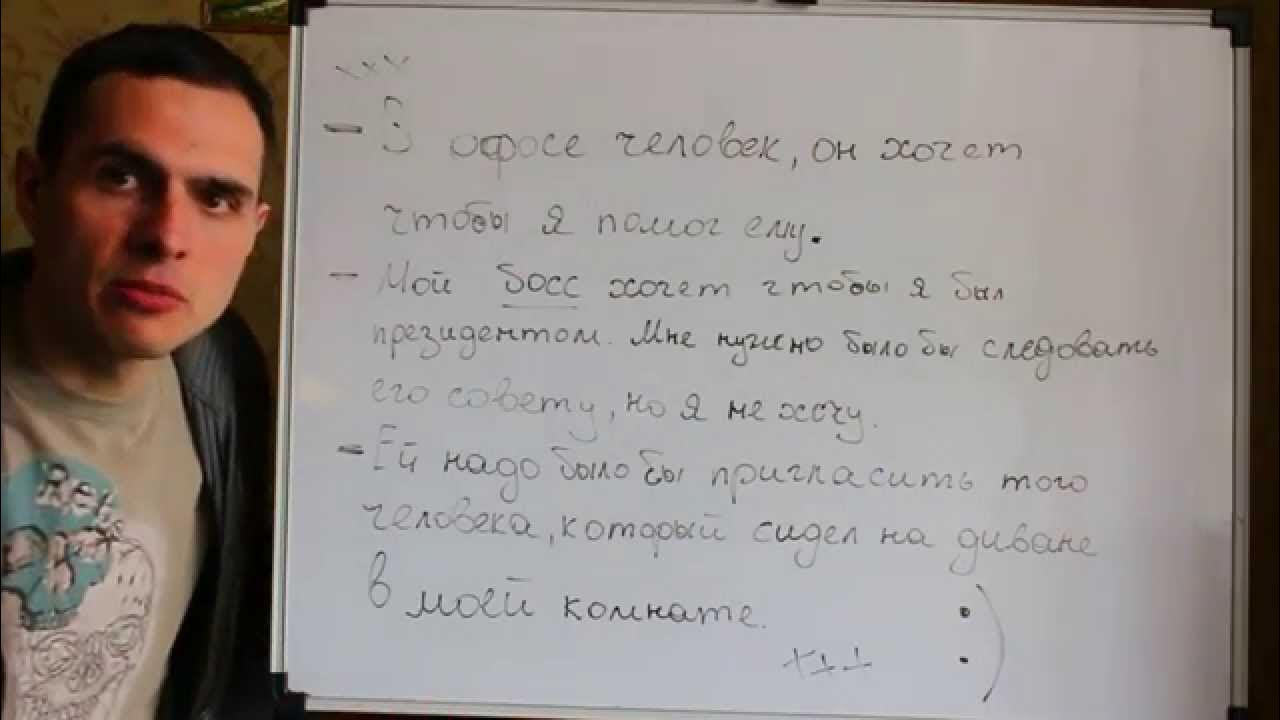 - В офосе человек, он хочет
чтобы я помог ему.
- Мой босс хочет чтобы я был
президентом. Мне нужно было бы следовать
его совету, но я не хочу.
- Ей надо было бы пригласить того
человека, который сидел на диване
в моей комнате.
:)